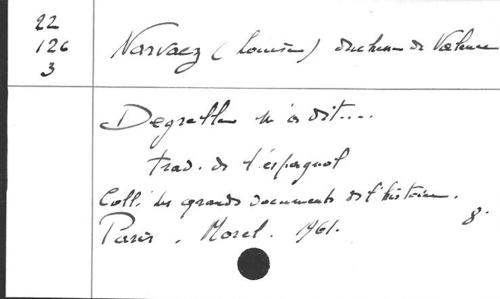 22
126
3
Narvaez (Louise) duchesse de Valence
Degrelle m'a dit....
trad. de l'espagnol
Coll. Les grands documents de l'histoire.
Paris. Morel. 1961. 8°